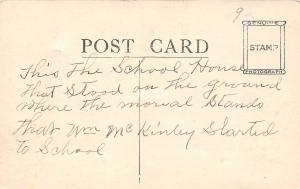 9
GENUINE
POST CARD
STAMP
PHOTOGRAPH
This The School House
that Stood on the ground
where the morial Stands
that Wm McKinley Started
to School